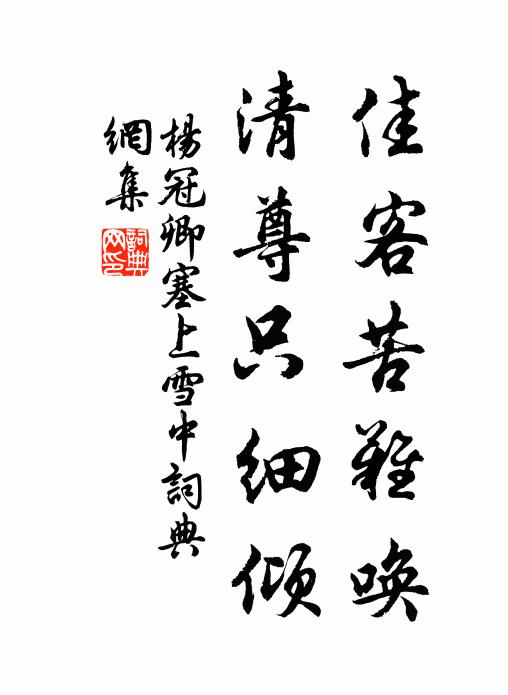 佳客苦難唤
清尊只细傾
楊冠卿塞上雪中詞典
網集
詞典網印